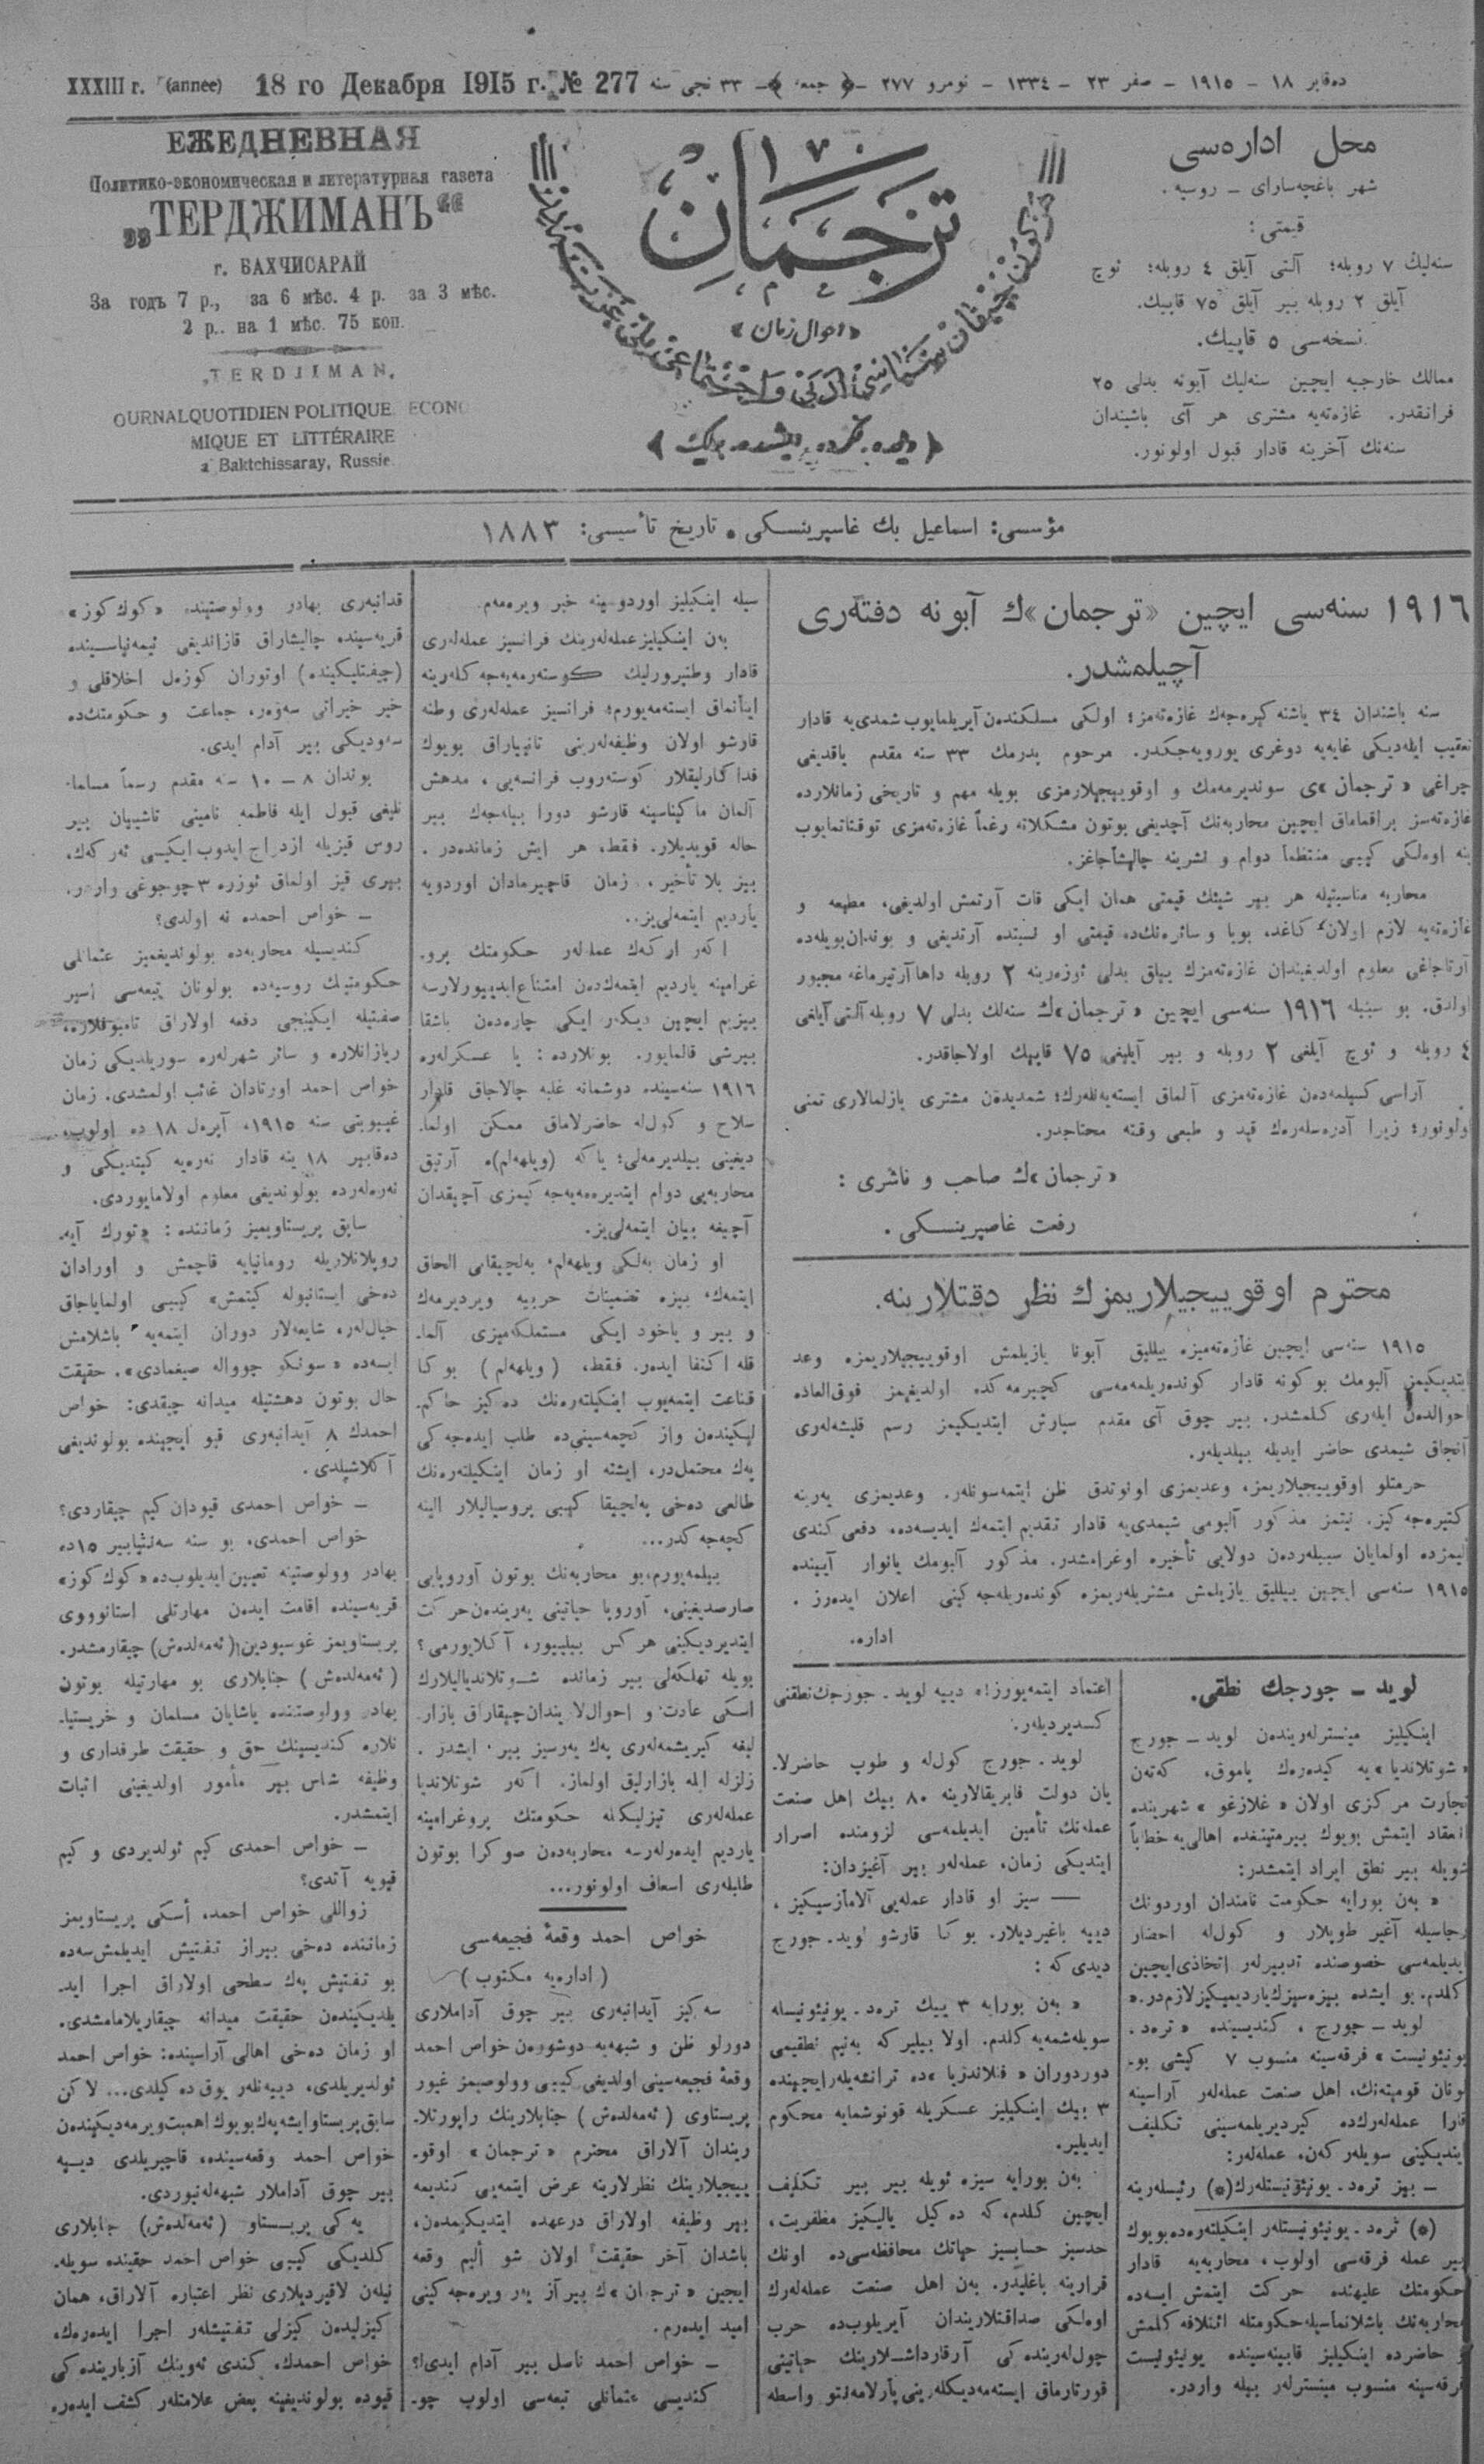 XXXIII г. (annee) 18 го Декабря 1915 г. № 277 ٣٣ نجی سنه —﴿ جمعه ﴾— نومرو ٢٧٧ — ١٣٣٤ — صفر ٢٣ — ١٩١٥ — ١٨ ده‌قابر
ЕЖЕДНЕВНАЯ
Политико-экономическая и литературная газета
„ТЕРДЖИМАНЪ“
г. БАХЧИСАРАЙ
За годъ 7 р., за 6 мѣс. 4 р. за 3 мѣс.
2 р.. на 1 мѣс. 75 коп.
„TERDJIMAN„
OURNALQUOTIDIEN POLITIQUE ECONO
MIQUE ET LITTÉRAIRE
a Baktchissaray, Russie
ترجمان
«احوال زمان»
﴿ دیلده، فكرده، ایشده برلك ﴾
محل اداره‌سی
شهر باغچه‌سارای — روسیه .
قیمتی :
سنه‌لیك ٧ روبله؛ آلتی آیلق ٤ روبله؛ ئوچ
آیلق ٢ روبله بیر آیلق ٧٥ قاپیك.
نسخه‌سی ٥ قاپیك.
ممالك خارجیه ایچین سنه‌لیك آبونه بدلی ٢٥
فرانقدر. غازه‌ته‌یه مشتری هر آی باشیندان
سنه‌نك آخرینه قادار قبول اولونور.
مؤسسی: اسماعیل بك غاسپرینسكی • تاریخ تأسیسی: ١٨٨٣
١٩١٦ سنه‌سی ایچین «ترجمان»ك آبونه دفته‌ری
آچیلمشدر.
سنه باشندان ٣٤ یاشنه كیره‌جه‌ك غازه‌ته‌مز؛ اولكی مسلكندن آیریلمایوب شمدی‌یه قادار
تعقیب ایله‌دیكی غایه‌یه دوغری یورویه‌جكدر. مرحوم پدرمك ٣٣ سنه مقدم یاقدیغی
چراغی «ترجمان»ی سوندیرمه‌مك و اوقوییجیلارمزی بویله مهم و تاریخی زمانلارده
غازه‌ته‌سز براقماماق ایچین محاربه‌نك آچدیغی بوتون مشكلاته رغماً غازه‌ته‌مزی توقتاتمایوب
ینه اوه‌لكی كیبی منتظماً دوام و نشرینه چالیشاجاغز.
محاربه مناسبتیله هر بیر شیئك قیمتی همان ایكی قات آرتمش اولدیغی، مطبعه و
غازه‌ته‌یه لازم اولان كاغد، بویا و سائره‌نك‌ده قیمتی او نسبتده آرتدیغی و بوندان‌بویله‌ده
آرتاجاغی معلوم اولدیغیندان غازه‌ته‌مزك ییلق بدلی ئوزه‌رینه ٢ روبله داها آرتیرماغه مجبور
اولدق. بو سببله ١٩١٦ سنه‌سی ایچین «ترجمان»ك سنه‌لك بدلی ٧ روبله آلتی آیلغی
٤ روبله و ئوچ آیلغی ٢ روبله و بیر آیلیغی ٧٥ قاپیك اولاجاقدر.
آراسی كسیلمه‌دن غازه‌ته‌مزی آلماق ایسته‌یه‌نله‌رك؛ شمدیدن مشتری یازلمالاری تمنی
اولونور؛ زیرا آدره‌سله‌رك قید و طبعی وقته محتاجدر.
«ترجمان»ك صاحب و ناشری :
رفعت غاصپرینسكی .
محترم اوقوییجیلاریمزك نظر دقتلارینه.
١٩١٥ سنه‌سی ایچین غازه‌ته‌میزه ییللیق آبونا یازیلمش اوقوییجیلاریمزه وعد
ایتدیكیمز آلبومك بو كونه قادار كونده‌ریلمه‌مه‌سی كچیرمه‌كده اولدیغیمز فوق‌العاده
احوالدن ایله‌ری كلمشدر. بیر چوق آی مقدم سپارش ایتدیكیمز رسم قلیشه‌له‌ری
آنجاق شیمدی حاضر ایدیله بیلدیلر.
حرمتلو اوقوییجیلاریمز، وعدیمزی اونوتدق ظن ایتمه‌سونله‌ر. وعدیمزی یه‌رینه
كتیره‌جه‌كیز. نیتمز مذكور آلبومی شیمدی‌یه قادار تقدیم ایتمه‌ك ایدیسه‌ده، دفعی كندی
الیمزده اولمایان سببله‌ردن دولایی تأخیره اوغرامشدر. مذكور آلبومك یانوار آیینده
١٩١٥ سنه‌سی ایچین ییللیق یازیلمش مشتریله‌ریمزه كونده‌ریله‌جه‌كینی اعلان ایده‌رز .
اداره.
لوید — جورجك نطقی.
اینكیلیز مینسترله‌ریندن لوید — جورج
«شوتلاندیا»یه كیده‌رك یاموق، كه‌تن
تجارت مركزی اولان «غلازغو» شهرینده
انعقاد ایتمش بویوك بیرمیتینغده اهالی‌یه خطاباً
شویله بیر نطق ایراد ایتمشدر:
« به‌ن بورایه حكومت نامندان اوردونك
رجاسیله آغیر طوپلار و كولله احضار
ایدیلمه‌سی خصوصنده تدبیرله‌ر اتخاذی‌ایچین
كلدم. بو ایشده بیزه‌سیزك‌یاردیمیكیز لازم‌در.»
لوید — جورج ، كندیسینده « تره‌د .
یونیئونیست » فرقه‌سینه منسوب ٧ كیشی بو.
لونان قومیته‌نك، اهل صنعت عمله‌لر آراسینه
قارا عمله‌له‌رك‌ده كیردیریلمه‌سینی تكلیف
ایتدیكینی سویله‌ر كه‌ن، عمله‌له‌ر:
— بیز تره‌د. یونیئونیستله‌رك(*) رئیسله‌رینه
(*) تره‌د. یونیئونیستله‌ر اینكیلته‌ره‌ده بویوك
بیر عمله فرقه‌سی اولوب، محاربه‌یه قادار
حكومتك علیهنده حركت ایتمش ایسه‌ده
محاربه‌نك باشلانماسیله حكومتله ائتلافه كلمش
و حاضرده اینكیلیز قابینه‌سینده یونیئونیست
فرقه‌سینه منسوب مینسترله‌ر بیله واردر.
اعتماد ایتمه‌یورز!» دییه لوید. جورجك‌نطقنی
كسدیردیله‌ر.
لوید. جورج كولله و طوپ حاضرلا.
یان دولت فابریقالارینه ٨٠ بیك اهل صنعت
عمله‌نك تأمین ایدیلمه‌سی لزومنده اصرار
ایتدیكی زمان، عمله‌لر بیر آغیزدان:
— سیز او قادار عمله‌یی آلامازسیكیز ،
دییه باغیردیلار. بوكا قارشو لوید. جورج
دیدی كه :
« به‌ن بورایه ٣ بیك تره‌د. یونیئونیسله
سویله‌شمه‌یه كلدم. اولا بیلیر كه به‌نیم نطقیمی
دوردوران « فلاندزیا »ده ترانشه‌یله‌رایچینده
٣ بیك اینكیلیز عسكریله قونوشمایه محكوم
ایدیلیر.
به‌ن بورایه سیزه ئویله بیر بیر تكلیف
ایچین كلدم، كه ده‌كیل یالیكیز مظفریت،
حدسیز حسابسیز حیاتك محافظه‌سی‌ده اونك
قرارینه باغلیدر. به‌ن اهل صنعت عمله‌له‌رك
اوه‌لكی صداقتلاریندان آیریلوب‌ده حرب
چوللرینده‌كی آرقارداشلارینك حیاتینی
قورتارماق ایسته‌مه‌دیكله‌رینی پارلامه‌نتو واسطه
سیله اینكیلیز اوردوسینه خبر ویره‌مه‌م.
به‌ن اینكیلیزعمله‌له‌رینك فرانسیز عمله‌له‌ری
قادار وطنپرورلیك كوسته‌رمه‌یه‌جه‌كله‌رینه
اینانماق ایسته‌مه‌یورم؛ فرانسیز عمله‌له‌ری وطنه
قارشو اولان وظیفه‌له‌رینی تانییاراق بویوك
فداكارلیقلار كوسته‌روب فرانسه‌یی، مدهش
آلمان ماكیناسینه قارشو دورا بیله‌جه‌ك بیر
حاله قویدیلار. فقط، هر ایش زمانده‌در .
بیز بلا تأخیر، زمان قاچیرمادان اوردویه
یاردیم ایتمه‌لی‌یز..
اكه‌ر اركه‌ك عمله‌لر حكومتك پرو.
غرامینه یاردیم ایتمه‌كدن امتناع‌ایدییورلارسه
بیزیم ایچین دیكه‌ر ایكی چاره‌دن باشقا
بیرشی قالمایور. بونلارده: یا عسكرله‌ره
١٩١٦ سنه‌سینده دوشمانه غلبه چالاجاق قادار
سلاح و كولله حاضرلاماق ممكن اولما.
دیغینی بیلدیرمه‌لی؛ یاكه (ویلهه‌لم)ه آرتیق
محاربه‌یی دوام ایتدیره‌مه‌یه‌جه‌كیمزی آچیقدان
آچیغه بیان ایتمه‌لی‌یز.
او زمان به‌لكی ویلهه‌لم، به‌لچیقایی الحاق
ایتمه‌ك، بیزه تضمینات حربیه ویردیرمه‌ك
و بیر و یاخود ایكی مستملكه‌میزی آلما.
قله اكتفا ایده‌ر. فقط، ( ویلهه‌لم ) بوكا
قناعت ایتمه‌یوب اینكیلته‌ره‌نك ده‌كیز حاكم.
لیكیندن واز كچمه‌سینی‌ده طلب ایده‌جه‌كی
په‌ك محتمل‌در، ایشته او زمان اینكیلته‌ره‌نك
طالعی ده‌خی به‌لچیقا كیبی پروسیالیلار الینه
كچه‌جه‌كدر...
بیلمه‌یورم،بو محاربه‌نك بوتون آوروپایی
صارصدیغینی، آوروپا حیاتینی یه‌ریندن‌حركت
ایتدیردیكینی هر كس بیلییور، آكلایورمی؟
بویله تهلكه‌لی بیر زمانده شوتلاندیالیلارك
اسكی عادت و احوال‌لا یندان‌چیقاراق بازار.
لیغه كیریشمه‌له‌ری په‌ك یه‌رسیز بیر ایشدر .
زلزله ایله بازارلیق اولماز. اكه‌ر شوتلاندیا
عمله‌له‌ری تیزلیكله حكومتك پروغرامینه
یاردیم ایده‌رله‌رسه محاربه‌دن صوكرا بوتون
طلبله‌ری اسعاف اولونور...
خواص احمد وقعهٔ فجیعه‌سی
( اداره‌یه مكتوب )
سه‌كیز آیدانبه‌ری بیر چوق آداملاری
دورلو ظن و شبهه‌یه دوشوره‌ن خواص احمد
وقعهٔ فجیعه‌سینی اولدیغی كیبی وولوصیمز غیور
پریستاوی ( ئه‌مه‌لده‌ش ) جنابلارینك راپورتلا.
ریندان آلاراق محترم « ترجمان » اوقو.
ییجیلارینك نظرلارینه عرض ایتمه‌یی كندیمه
بیر وظیفه اولاراق درعهده ایتدیكیمدن،
باشدان آخر حقیقت اولان شو ألیم وقعه
ایچین «ترجمان»ك بیر آز یه‌ر ویره‌جه‌كینی
امید ایده‌رم.
— خواص احمد ناسل بیر آدام ایدی؟
كندیسی عثمانلی تبعه‌سی اولوب چو.
قدانبه‌ری بهادر وولوصتینده «كوك كوز»
قریه‌سینده چالیشاراق قازاندیغی ئیمه‌نیاسینده
(چیفتلیكینده) اوتوران كوزه‌ل اخلاقلی و
خیر خیراتی سه‌وه‌ر، جماعت و حكومتك‌ده
سه‌ودیكی بیر آدام ایدی.
بوندان ٨ — ١٠ سنه مقدم رسماً مسلما.
نلیغی قبول ایله فاطمه نامینی تاشییان بیر
روس قیزیله ازدواج ایدوب ایكیسی ئه‌ركه‌ك،
بیری قیز اولماق ئوزره ٣ چوجوغی واردر.
— خواص احمده نه اولدی؟
كندیسیله محاربه‌ده بولوندیغیمیز عثمانلی
حكومتینك روسیه‌ده بولونان تبعه‌سی اسیر
صفتیله ایكینجی دفعه اولاراق تامبوفلاره،
ریازانلاره و سائر شهرله‌ره سوریلدیكی زمان
خواص احمد اورتادان غائب اولمشدی. زمان
غیبوبتی سنه ١٩١٥، آپره‌ل ١٨ ده اولوب،
ده‌قابیر ١٨ ینه قادار نه‌ره‌یه كیتدیكی و
نه‌ره‌له‌رده بولوندیغی معلوم اولامایوردی.
سابق پریستاویمیز زماننده: «تورك آیه.
روپلانلاریله رومانیایه قاچمش و اورادان
ده‌خی ایستانبوله كیتمش» كیبی اولمایاجاق
خیال‌له‌ر، شایعه‌لار دوران ایتمه‌یه باشلامش
ایسه‌ده «سونكو چوواله صیغمادی». حقیقت
حال بوتون دهشتیله میدانه چیقدی: خواص
احمدك ٨ آیدانبه‌ری قیو ایچینده بولوندیغی
آكلاشیلدی.
— خواص احمدی قیودان كیم چیقاردی؟
خواص احمدی، بو سنه سه‌نتیابیر ١٥ده
بهادر وولوصتینه تعیین‌ایدیلوب‌ده «كوك كوز»
قریه‌سینده اقامت ایدن مهارتلی استانوووی
پریستاویمز غوسپودین (ئه‌مه‌لده‌ش) چیقارمشدر.
( ئه‌مه‌لده‌ش ) جنابلاری بو مهارتیله بوتون
بهادر وولوصتنده یاشایان مسلمان و خریستیا.
نلاره كندیسینك حق و حقیقت طرفداری و
وظیفه شناس بیر مأمور اولدیغینی اثبات
ایتمشدر.
— خواص احمدی كیم ئولدیردی و كیم
قیویه آتدی؟
زواللی خواص احمد، أسكی پریستاویمز
زماننده ده‌خی بیراز تفتیش ایدیلمش‌سه‌ده
بو تفتیش په‌ك سطحی اولاراق اجرا اید.
یلدیكیندن حقیقت میدانه چیقاریلامامشدی.
او زمان ده‌خی اهالی آراسینده: خواص احمد
ئولدیریلدی، دییه‌نله‌ر یوق ده‌كیلدی... لاكن
سابق‌پریستاوایشه‌په‌ك‌بویوك اهمیت‌ویرمه‌دیكیندن
خواص احمد وقعه‌سینده، قاچیریلدی دییه
بیر چوق آداملار شبهه‌له‌نیوردی.
یه‌كی پریستاو (ئه‌مه‌لده‌ش) جنابلاری
كلدیكی كیبی خواص احمد حقینده سویله.
نیله‌ن لاقیردیلاری نظر اعتباره آلاراق، همان
كیزلیدن كیزلی تفتیشله‌ر اجرا ایده‌ره‌ك،
خواص احمدك، كندی ئه‌وینك آزبارینده‌كی
قیوده بولوندیغینه بعض علامتله‌ر كشف ایده‌ر،